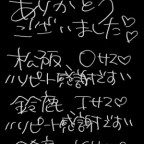 ありがとう
ございました♡
松阪、〇サマ♡
リピート感謝です!!
鈴鹿 Iサマ♡
リピート感謝です!!